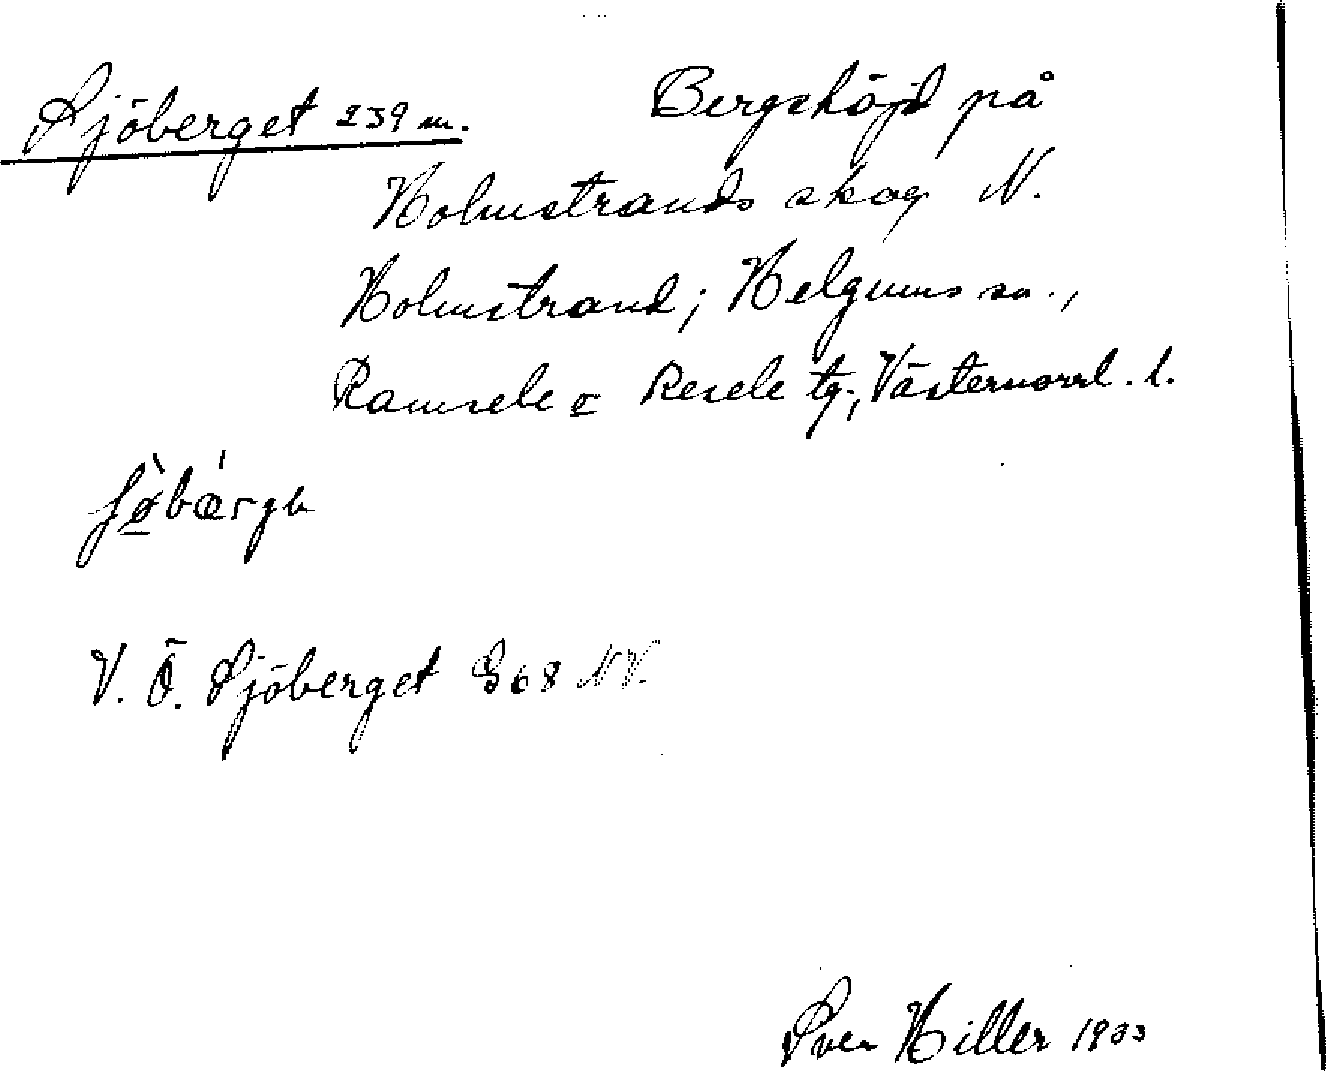 Sjöberget 239 m. Bergshöjd på
Holmstrands skog N.
Holmstrand; Helgums sn.,
Ramsele o Resele tg., Västernorrl. l.
ʃø̀bǽrgɩ
V. Ö. Sjöberget 968 NV.
Sven Hiller 1933